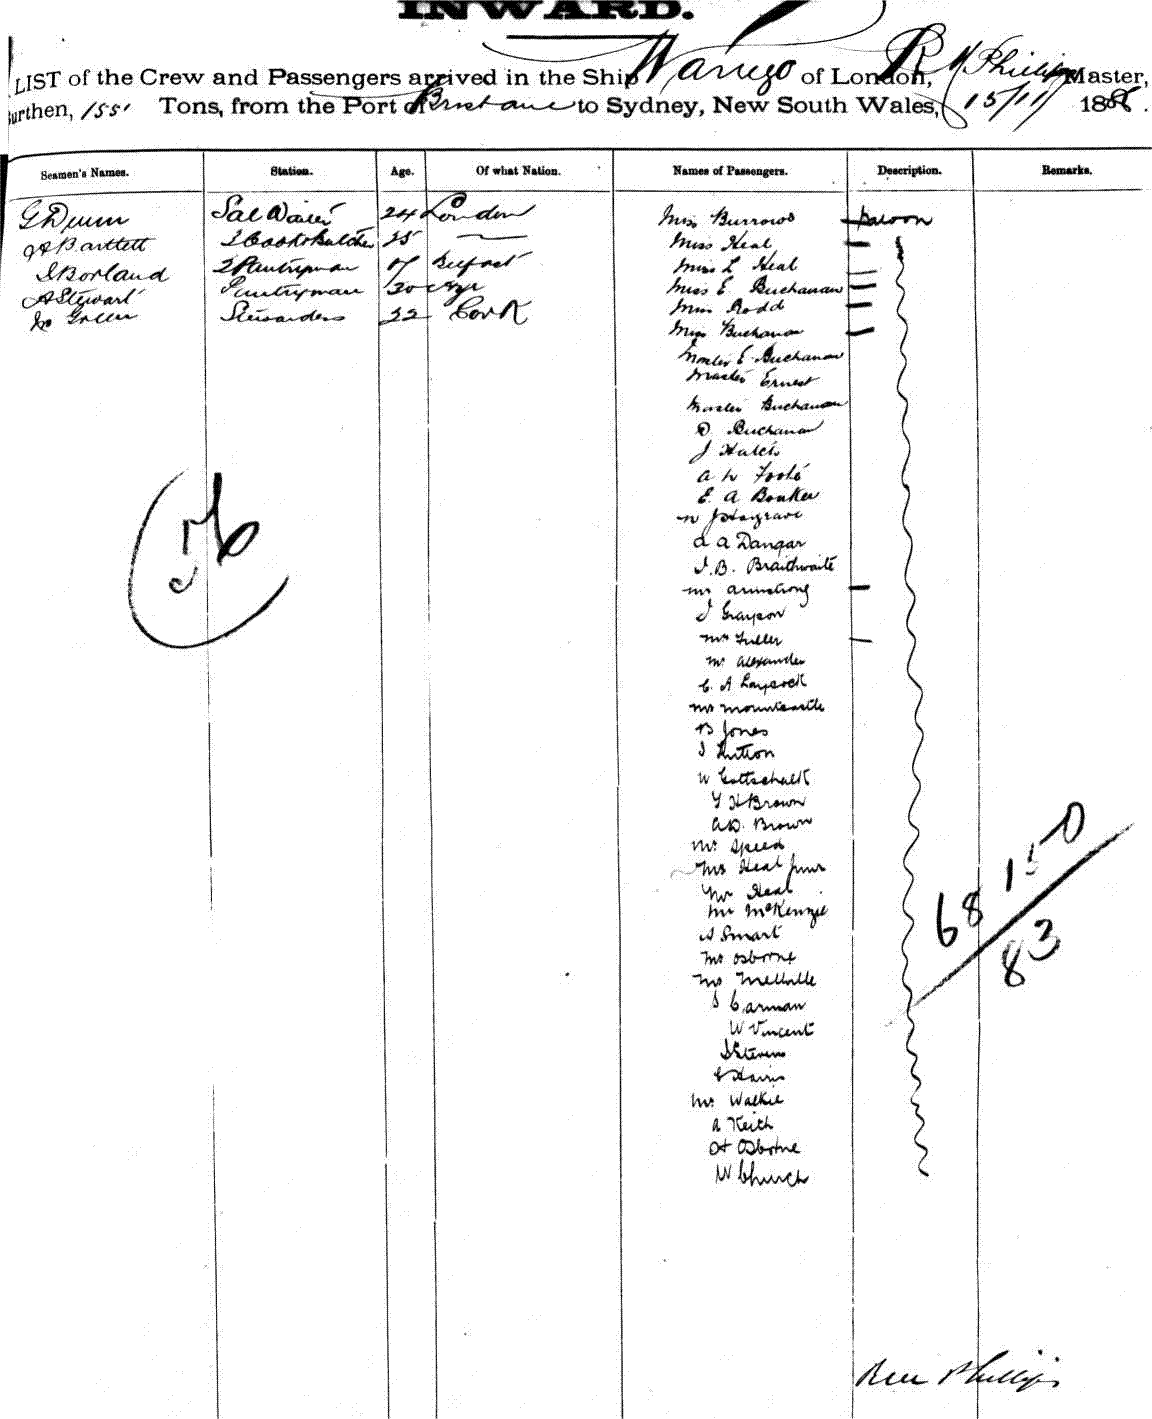 INWARD.
LIST of the Crew and Passengers arrived in the Ship Warrego of London, R M Phillips Master,
Burthen, 155 Tons, from the Port of Brisbane to Sydney, New South Wales, 15/11/ 188
Seamen's Names. Station. Age. Of what Nation. Names of Passengers. Description. Remarks.
G Dunn Sal Waiter 24 London Miss Burrows Saloon
A Bartlett 2 Cook & Butcher 25 — Miss Heal —
J Borland 2 Pantryman 17 Belfast Miss L Heal —
A Stewart Pantryman 20 Ayr Miss E Buchanan —
Green Stewardess 22 Cork Miss Rodd —
Miss Buchanan —
Master E Buchanan
Master Ernest
Master Buchanan
D Buchanan
J Hatch
A W Foote
E. A Bonker
Hargrave
A A Dangar
J. B. Braithwaite
Mrs Armstrong —
J Grayson
Mrs Fuller —
Mr Alexander
C. A Laycock
Mrs Mountcastle
B Jones
J Hutton
W Gottschalk
Y H Brown
A D. Brown
Mr Speed
Mrs Heal Junr
Mr Heal
Mr McKenzie
A Smart
Mr Osborne
Mrs Melville
J Carman
W Vincent
J Stevens
C Harris
Mr Walkie
A Keith
H Osborne
W Church
56
150
68
83
Phillips